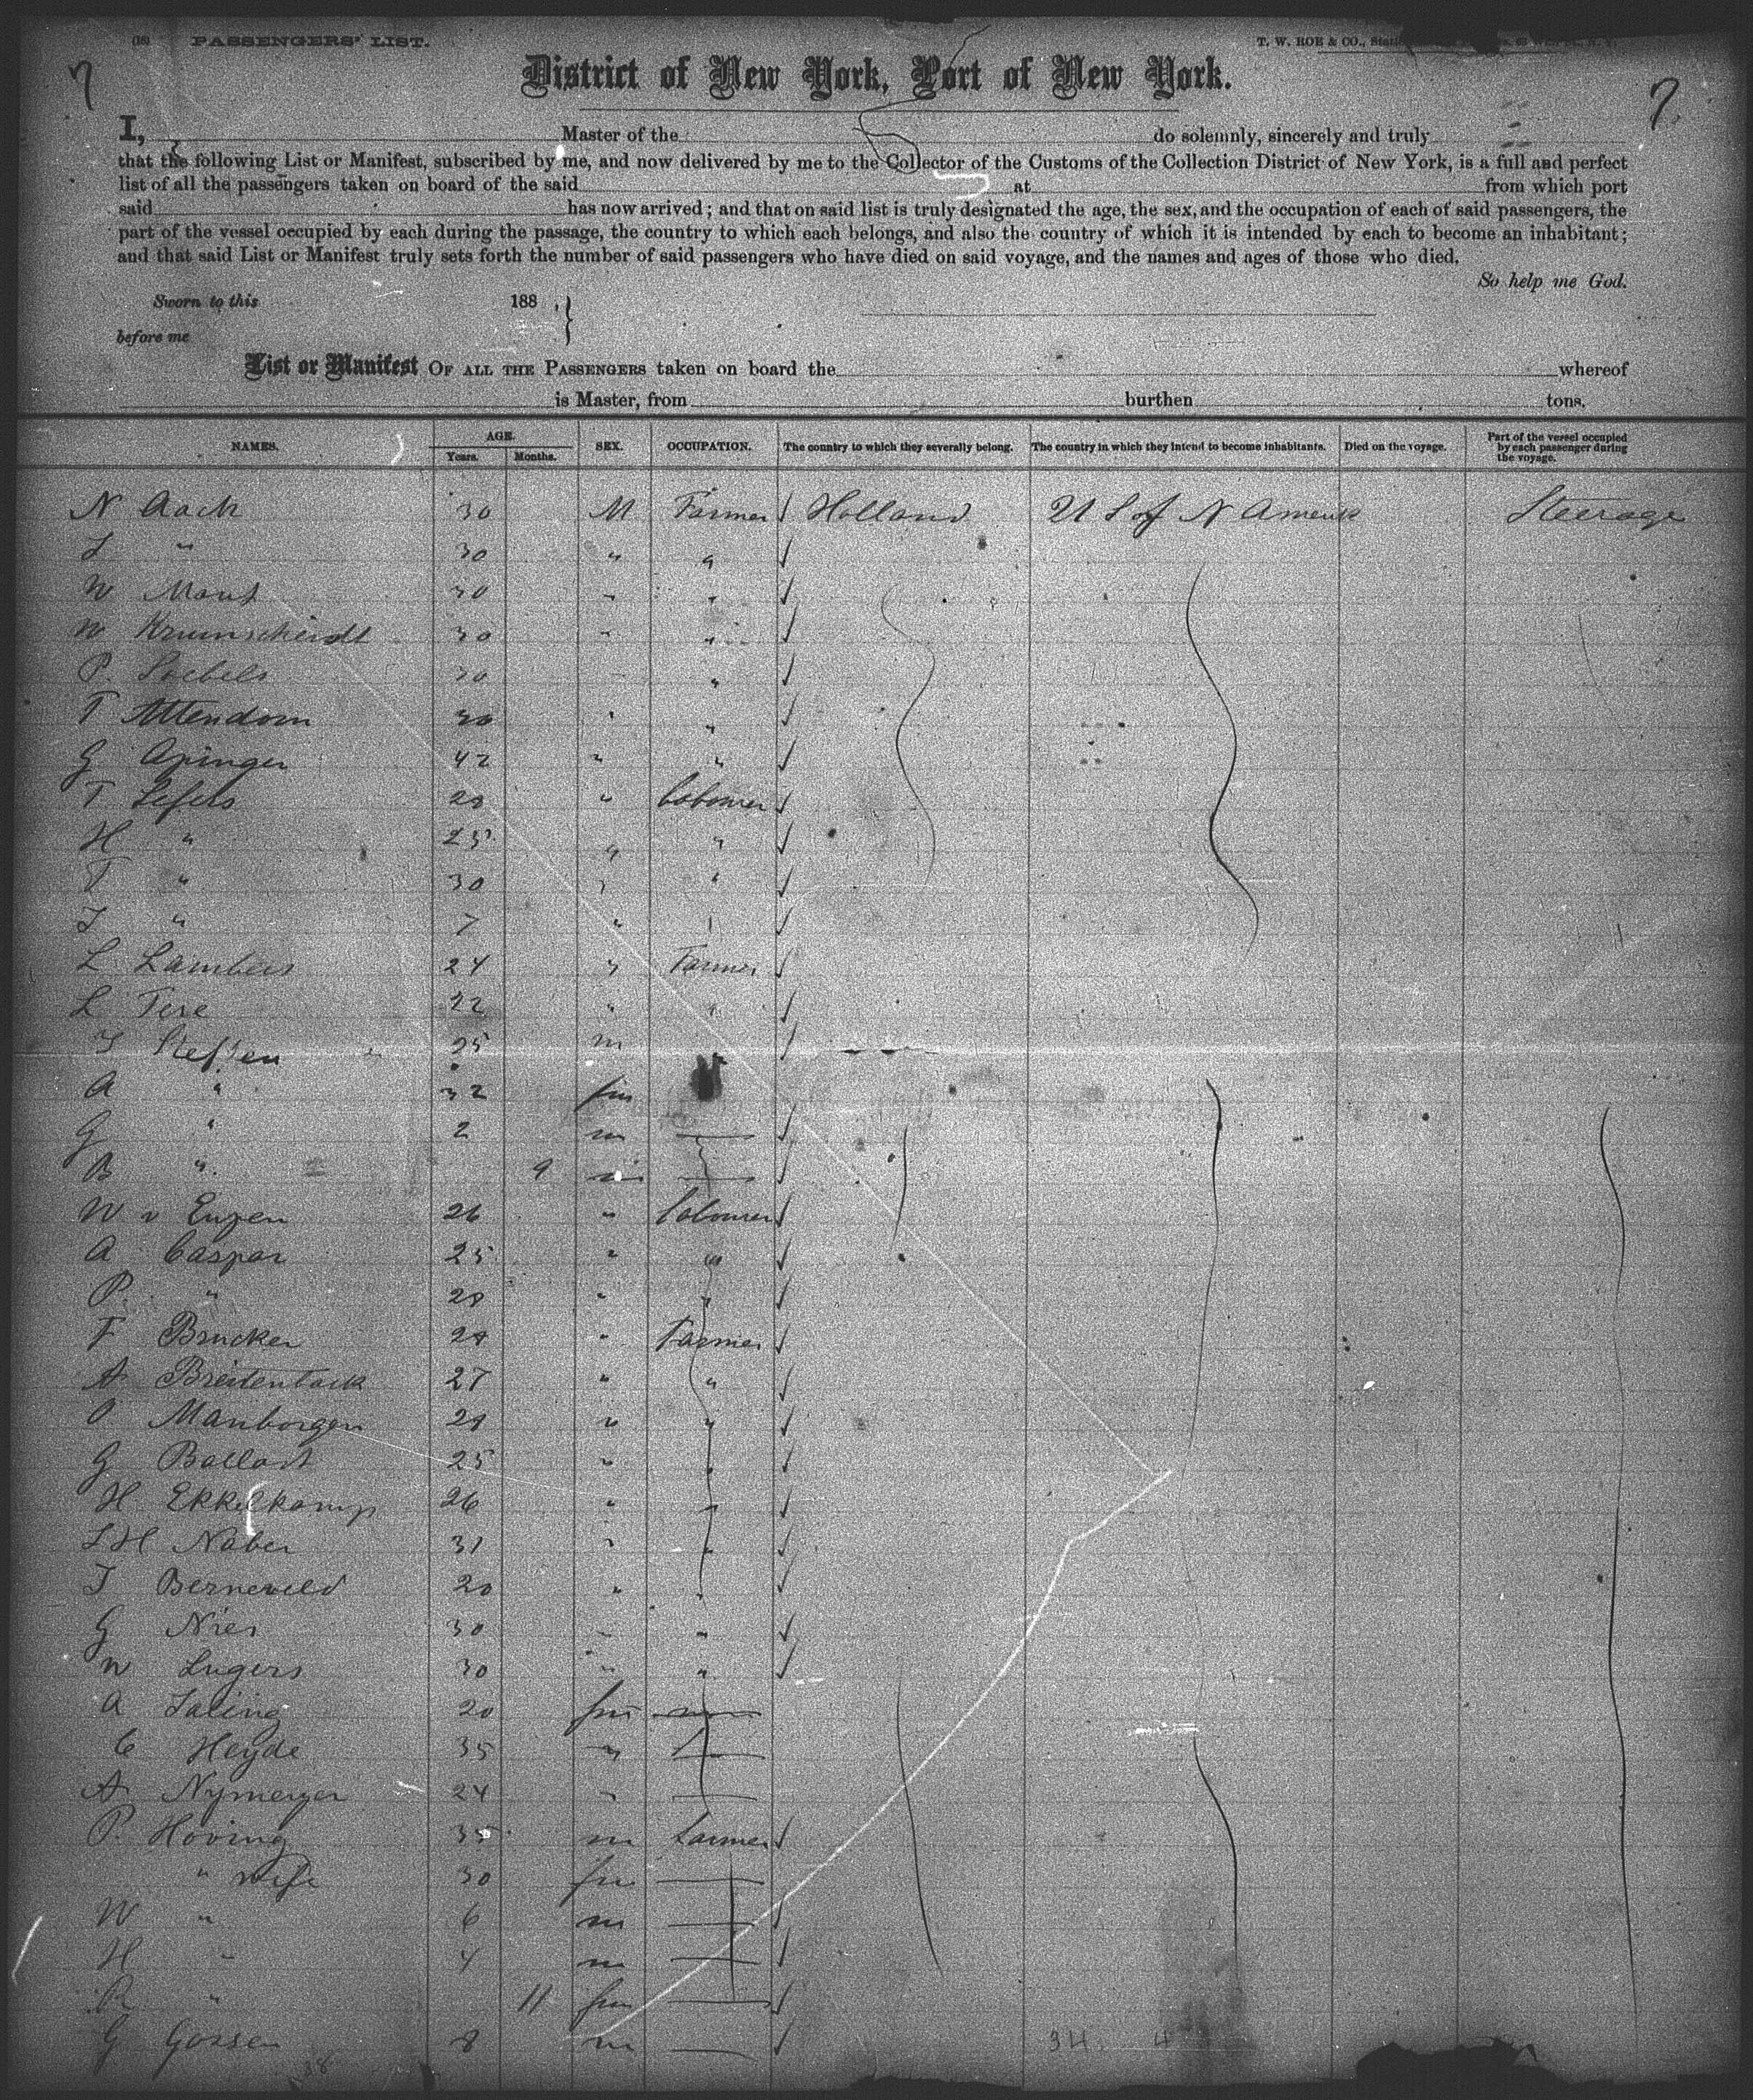 (18) PASSENGERS' LIST.
T. W. ROE & CO.,
7
District of New York, Port of New York.
7.
I, Master of the do solemnly, sincerely and truly
that the following List or Manifest, subscribed by me, and now delivered by me to the Collector of the Customs of the Collection District of New York, is a full and perfect
list of all the passengers taken on board of the said at from which port
said has now arrived; and that on said list is truly designated the age, the sex, and the occupation of each of said passengers, the
part of the vessel occupied by each during the passage, the country to which each belongs, and also the country of which it is intended by each to become an inhabitant;
and that said List or Manifest truly sets forth the number of said passengers who have died on said voyage, and the names and ages of those who died.
So help me God.
Sworn to this 188 , }
before me
List or Manifest OF ALL THE PASSENGERS taken on board the whereof
is Master, from burthen tons.
NAMES. AGE. Years. Months. SEX. OCCUPATION. The country to which they severally belong. The country in which they intend to become inhabitants. Died on the voyage. Part of the vessel occupied by each passenger during the voyage.
N Aach 30 M Farmer Holland U S of N America Steerage
" 30 " "
W 30 " "
W Krumscheidt 30 " "
P. 30 "
T Attendorn 30 " "
G Apinger 42 " "
T Lefers " Labourer
H " 25 " "
T " 30 " "
" 7 "
L Lambers 24 " Farmer
L Tese 22 " "
Steffen 25 m
A " 32 fm
G " 2 m —
B " 9 m —
W v Euzen 26 " Labourer
A Caspar 25 " "
P " " "
F Brucker " Farmer
A Breitenback 27 " "
Manborgen " "
G Ballast 25 " "
H Ekkelkamp 26 " "
Naber 31 " "
Berneveld 20 " "
G Nies 30 " "
W Lugers 30 " "
A 20 fm —
C Heyde 35 " —
A Nymeyer 24 " —
P. Hoving 35 m Farmer
" wife 30 fm —
W " 6 m —
H " 4 m —
" 11 fm —
G Gossen 8 m —
34. 4
38